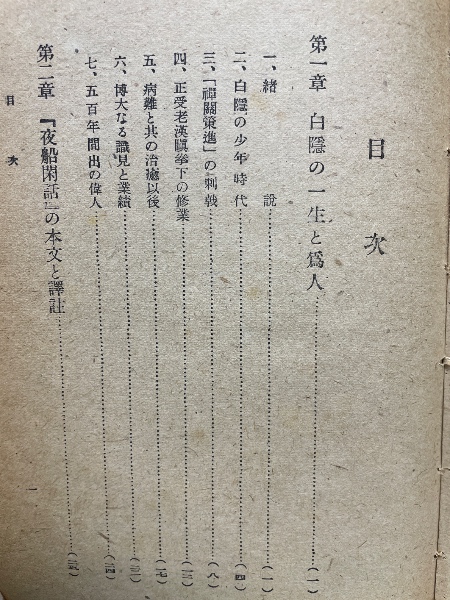 目次
第一章 白隱の一生と爲人……(一)
一、緒說……(一)
二、白隱の少年時代……(四)
三、「禪關策進」の刺戟……(八)
四、正受老漢瞋拳下の修業……(一三)
五、病難と其の治癒以後……(一七)
六、博大なる識見と業績……
七、五百年間出の偉人……
第二章 『夜船閑話』の本文と譯註……
目次